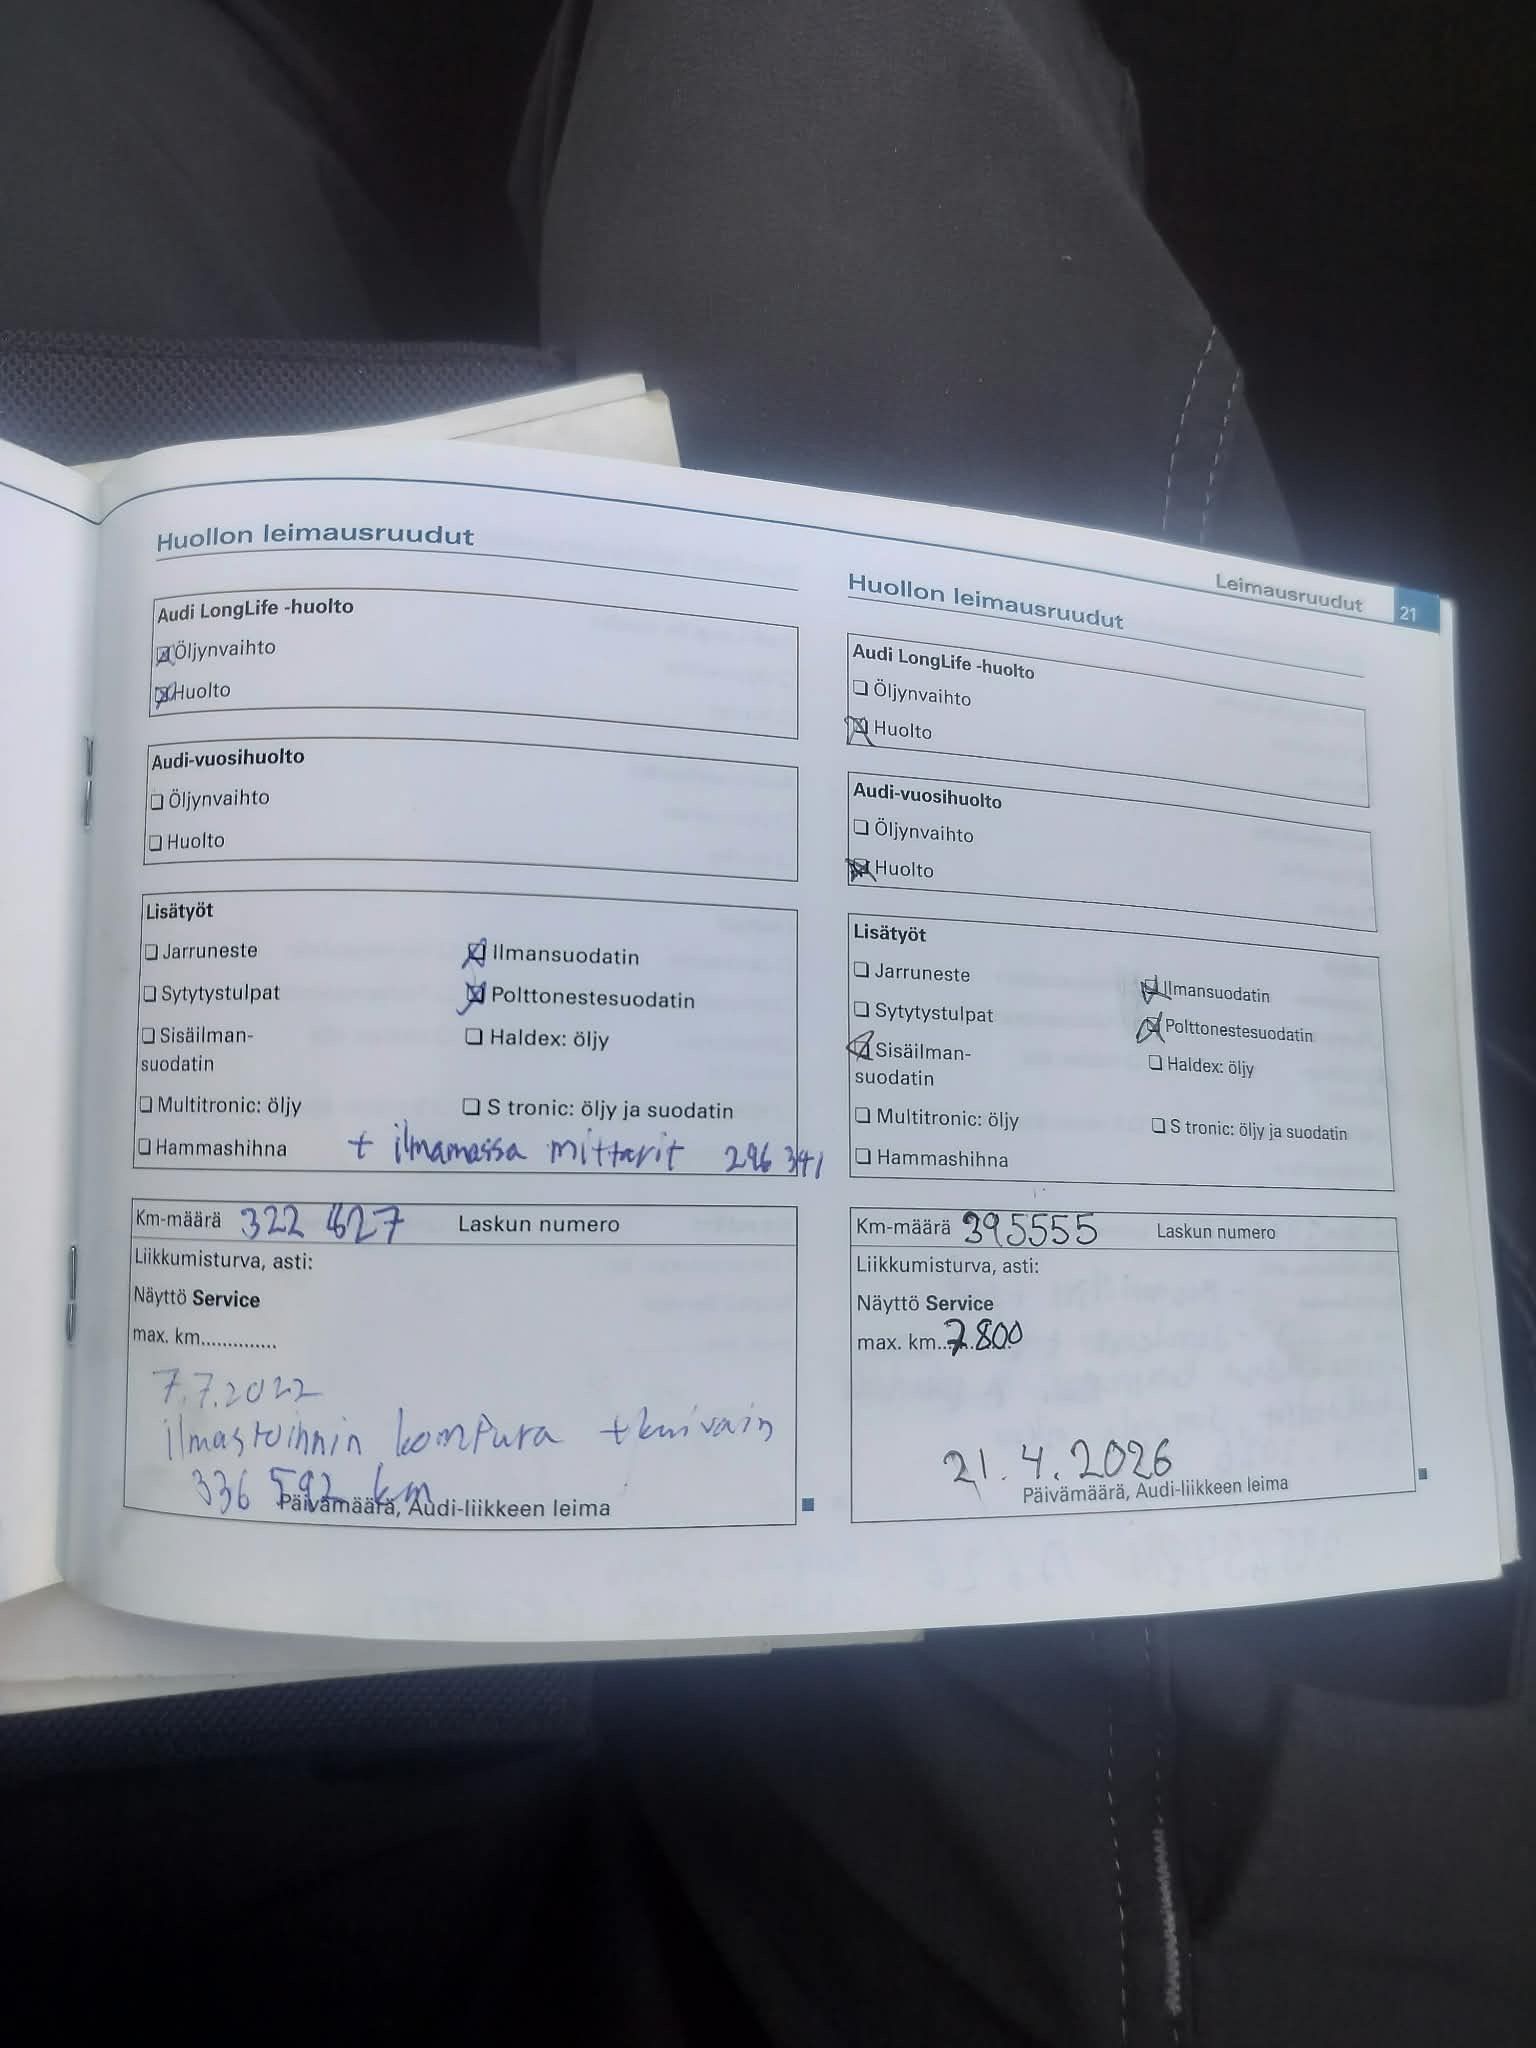 Leimausruudut 21
Huollon leimausruudut
Audi LongLife -huolto
Öljynvaihto
Huolto
Audi-vuosihuolto
Öljynvaihto
Huolto
Lisätyöt
Jarruneste
Ilmansuodatin
Sytytystulpat
Polttonestesuodatin
Sisäilman-
suodatin
Haldex: öljy
Multitronic: öljy
S tronic: öljy ja suodatin
Hammashihna + ilmamassa mittarit 296 341
Km-määrä 322 627 Laskun numero
Liikkumisturva, asti:
Näyttö Service
max. km.............
7.7.2022
ilmastoinnin kompura + kuivain
336 592 km
Päivämäärä, Audi-liikkeen leima
Huollon leimausruudut
Audi LongLife -huolto
Öljynvaihto
Huolto
Audi-vuosihuolto
Öljynvaihto
Huolto
Lisätyöt
Jarruneste
Ilmansuodatin
Sytytystulpat
Polttonestesuodatin
Sisäilman-
suodatin
Haldex: öljy
Multitronic: öljy
S tronic: öljy ja suodatin
Hammashihna
Km-määrä 395555 Laskun numero
Liikkumisturva, asti:
Näyttö Service
max. km... 7800
21.4.2026
Päivämäärä, Audi-liikkeen leima